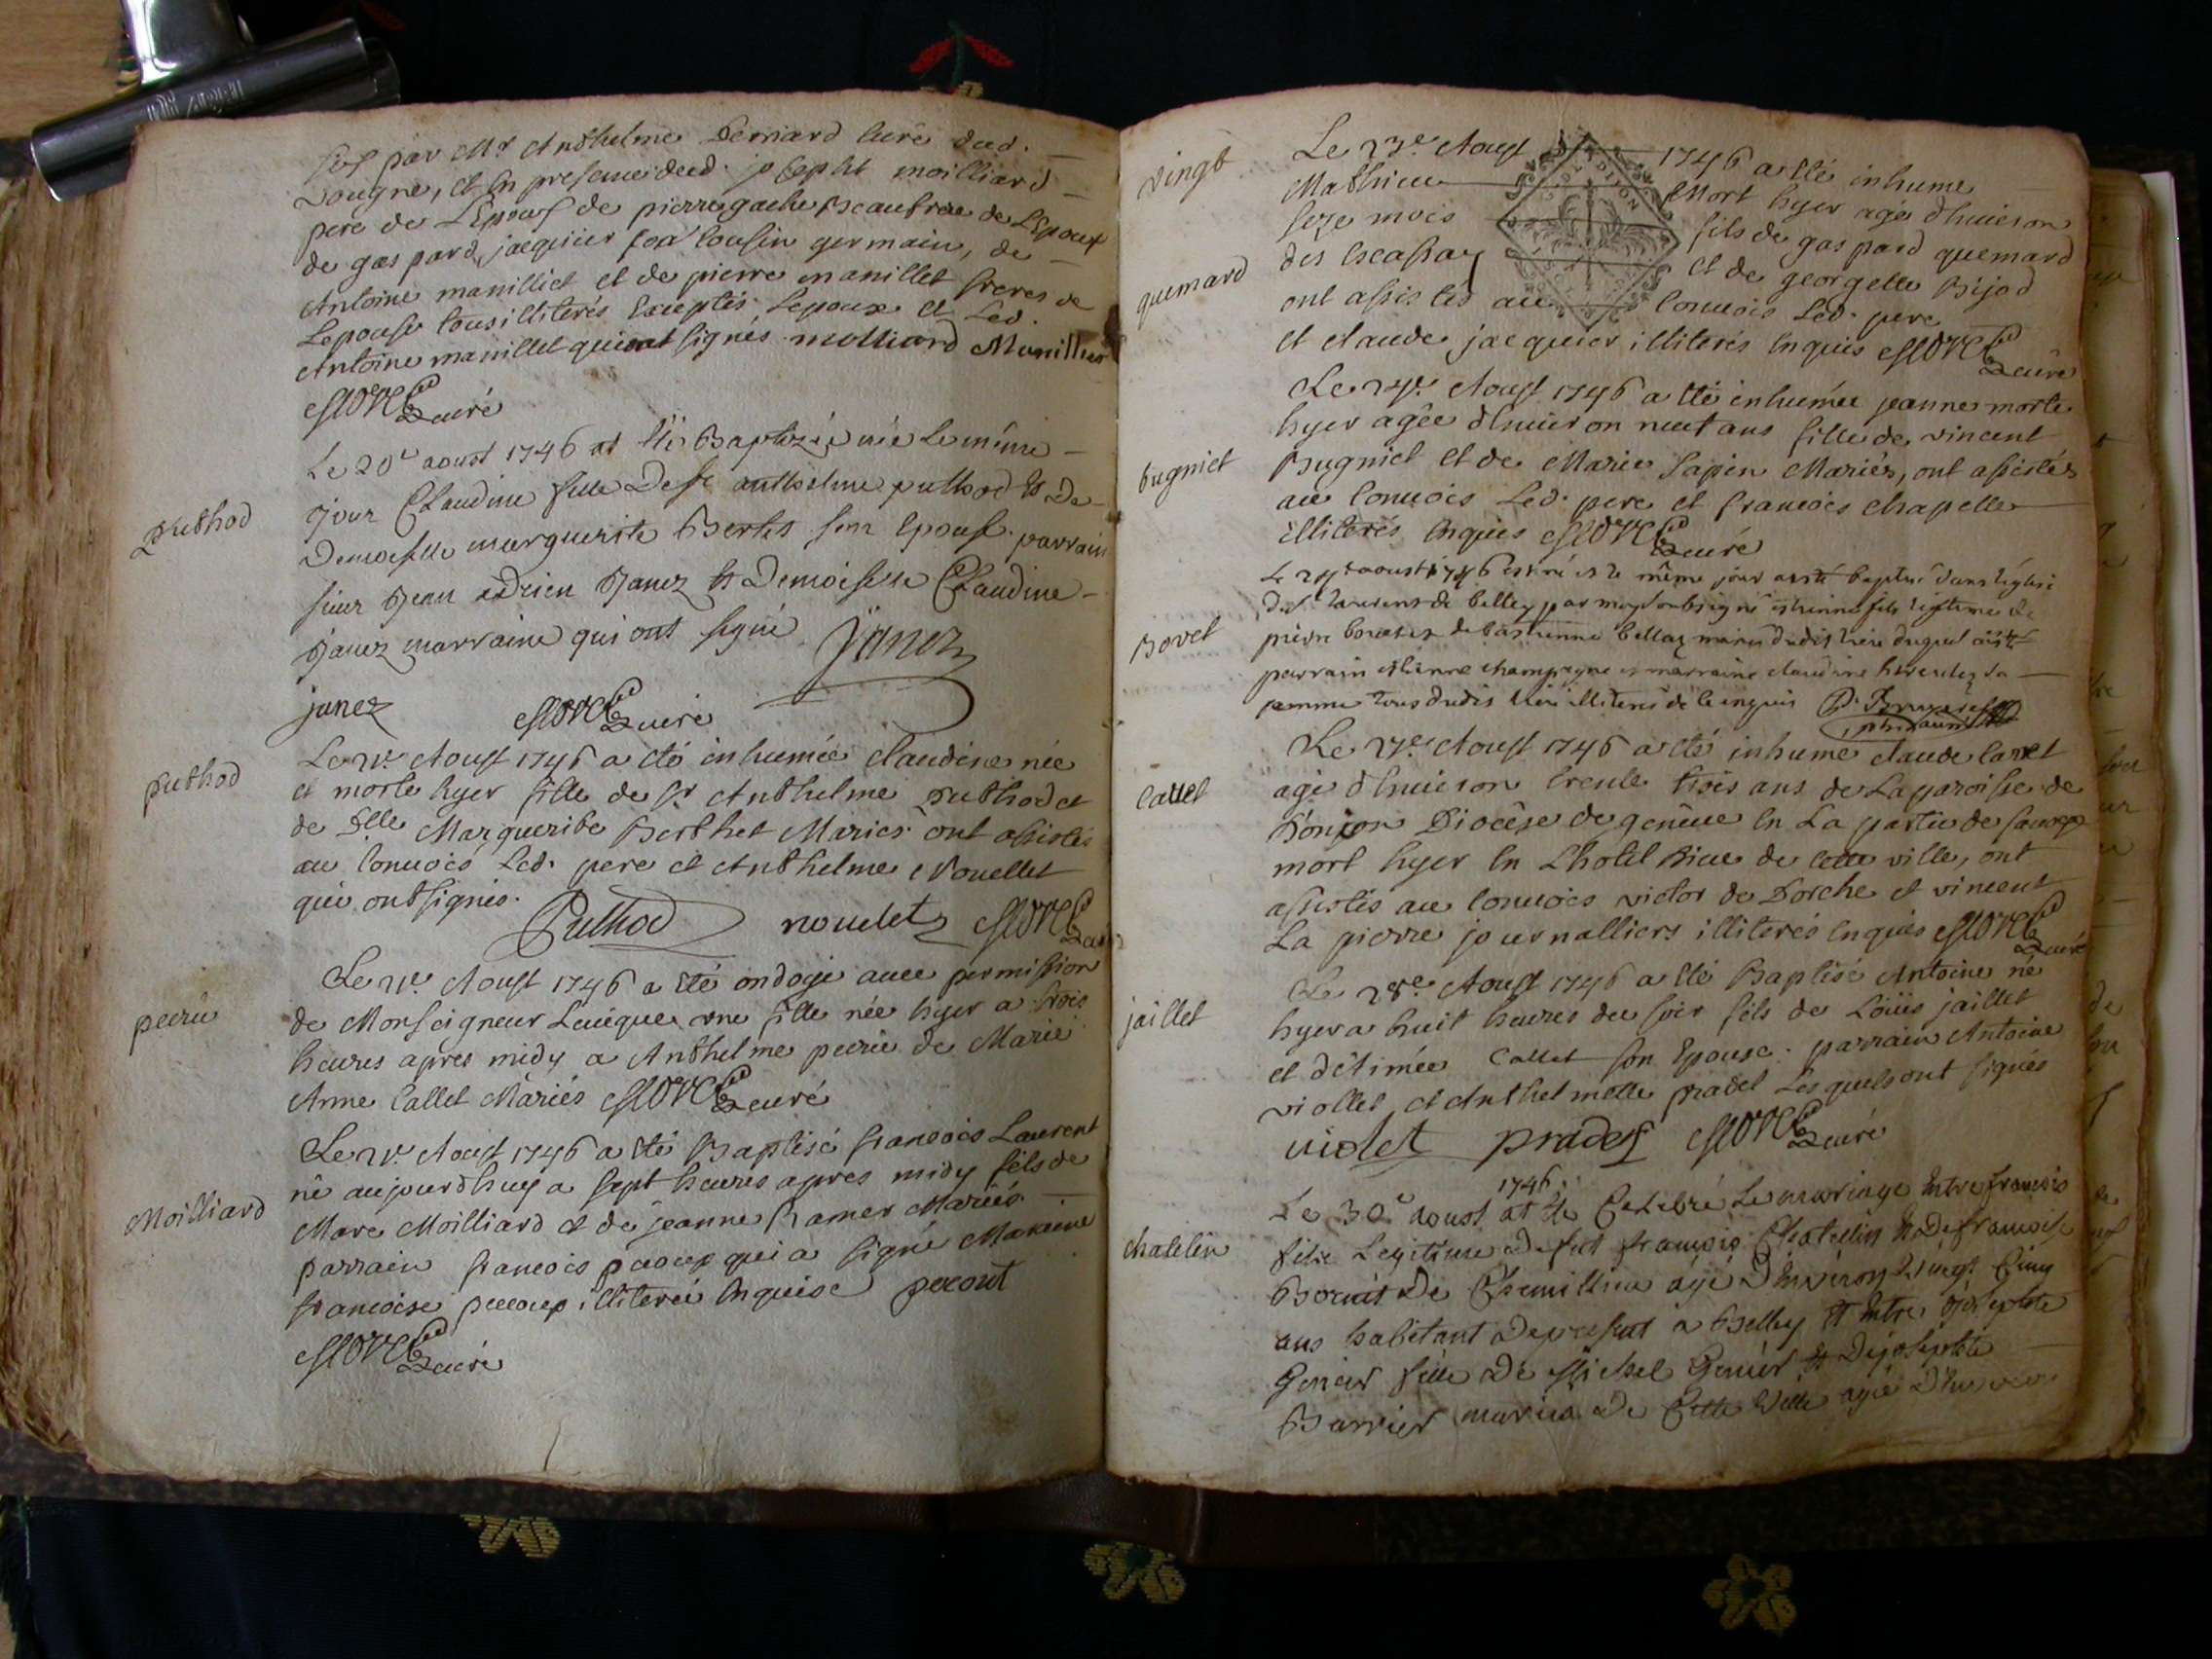 par Mr Anthelme Berriard curé dud.
Vongne, et en presence dud. joseph moilliard
pere de L'Epouse de pierre gache Beaufrere de L'Epoux
de gaspard jacquier son cousin germain, de
Antoine manilliet et de pierre manillet freres de
Lepouse tous illiterés Exceptés Lepoux et Led.
Antoine manillet qui ont signés molliard Manillier
curé
puthod
Le 20e aoust 1746 at été Baptizée née le même
jour Claudine fille de sr anthelme puthod et De
Demoiselle marguerite Bertet son Epouse parrain
sieur Jean adrien Janez et Demoiselle Claudine
Janez marraine qui ont signé Janez
janez
curé
puthod
Le 21e Aoust 1746 a eté inhumée claudine née
et morte hyer fille de sr Anthelme puthod et
de Dlle Margueribe Berthet Mariés ont assistés
au convois Led. pere et Anthelme Nouellet
qui ont signés.
Puthod nouelet
curé
peiriu
Le 21e Aoust 1746 a eté ondoyé avec permission
de Monseigneur Leveque une fille née hyer a trois
heures apres midy a Anthelme de Marie
Anne Callet Mariés curé
Moilliard
Le 21e Aoust 1746 a eté Baptisé francois Laurent
né aujourdhuy a sept heures apres midy fils de
Marc Moilliard et de jeanne Ramer Mariés
parrain francois qui a signé Maraine
francoise illiterée Enquise pecout
curé
vingt
Le 23e Aoust 1746 a eté inhume
Mathieu Mort hyer agé d'huiron
seze mois fils de gaspard quemard
quemard
des Ecassaz et de georgette Béjod
ont assistés au convois Led. pere
et claude jacquier illiterés Enquis
curé
Le 24e Aoust 1746 a eté inhumée jeanne morte
hyer agée d'huiron neuf ans fille de vincent
bugniet
Bugniet et de Marie Sapin Mariés, ont assistés
au convois Led. pere et francois chapelle
illiterés Enquis curé
Le aoust 1746 est né et le même jour a esté baptisé dans léglise
de St. laurent de belley par moy soubsigné estienne fils légitime de
Bovet
pierre et de estiennne bellay mariés dudit lieu duquel a esté
parrain estienne champagne et marraine claudine
femme tous dudit lieu illiterés de ce enquis
Le 27e Aoust 1746 a eté inhume claude
Callet
agé d'huiron trente trois ans de La paroisse de
Diocèse de genêve En La partie de savoye
mort hyer En L'hotel Dieu de cette ville, ont
assistés au convois victor de Dorche et vincent
La pierre journalliers illiterés Enquis
curé
Le 28e Aoust 1746 a eté Baptisé Antoine né
jaillet
hyer a huit heures du soir fils de Loüis jaillet
et d'étimée Callet son Epouse: parrain Antoine
viollet, et Anthelmette pradel Lesquels ont signés
violet prades curé
1746
Le 30e aoust at été Celebré Le mariage Entre francois
chatelin
fils Legitime De fut françois Chatelin et De francoise
De Chemillieu agé D'Environ Vingt Cinq
ans habitant De present a Belley Et Entre josephte
Genier fille De Michel Genier et De josephte
Barrier mariés De Cette Ville agée D'Environ